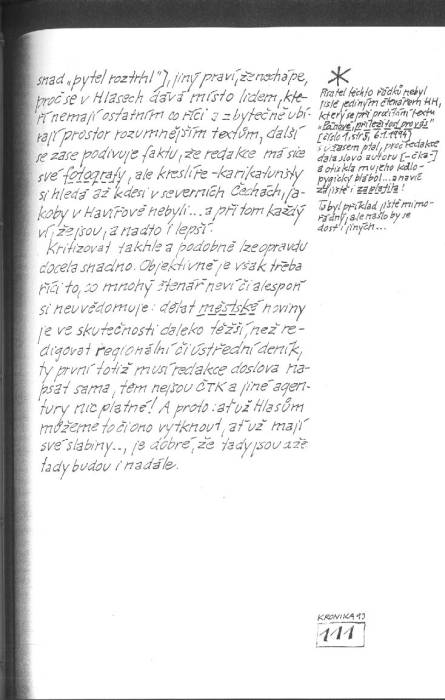 snad „pytel roztrhl"), jiný praví, že nechápe,
proč se v Hlasech dává místo lidem, kte-
ří nemají ostatním co říci a zbytečně ubí-
rají prostor rozumnějším textům, další
se zase podivuje faktu, že redakce má sice
své fotografy, ale kreslíře-karikaturisty
si hledá až kdesi v severních Čechách, ja-
koby v Havířově nebyli... a přitom každý
ví, že jsou, a nadto i lepší.
Kritizovat takhle a podobně lze opravdu
docela snadno. Objektivně je však třeba
říci to, co mnohý čtenář neví či alespoň
si neuvědomuje: dělat městské noviny
je ve skutečnosti daleko těžší, než re-
digovat regionální či ústřední deník,
ty první totiž musí redakce doslova na-
psat sama, těm nejsou ČTK a jiné agen-
tury nic platné! A proto: ať už Hlasům
můžeme to či ono vytknout, ať už mají
své slabiny..., je dobré, že tady jsou a že
tady budou i nadále.
*
Pisatel těchto řádků nebyl
jistě jediným čtenářem HH,
který se při pročítání textu
"Pánové, příležitost pro vás"
[číslo 1, str. 5, 6.1.1994]
s úžasem ptal, proč redakce
dala slovo autoru [-čka-]
a otiskla mu jeho
blábol... a navíc
zajisté i zaplatila!
To byl příklad jistě mimo-
řádný, ale našlo by se
dost i jiných...
KRONIKA 93
111